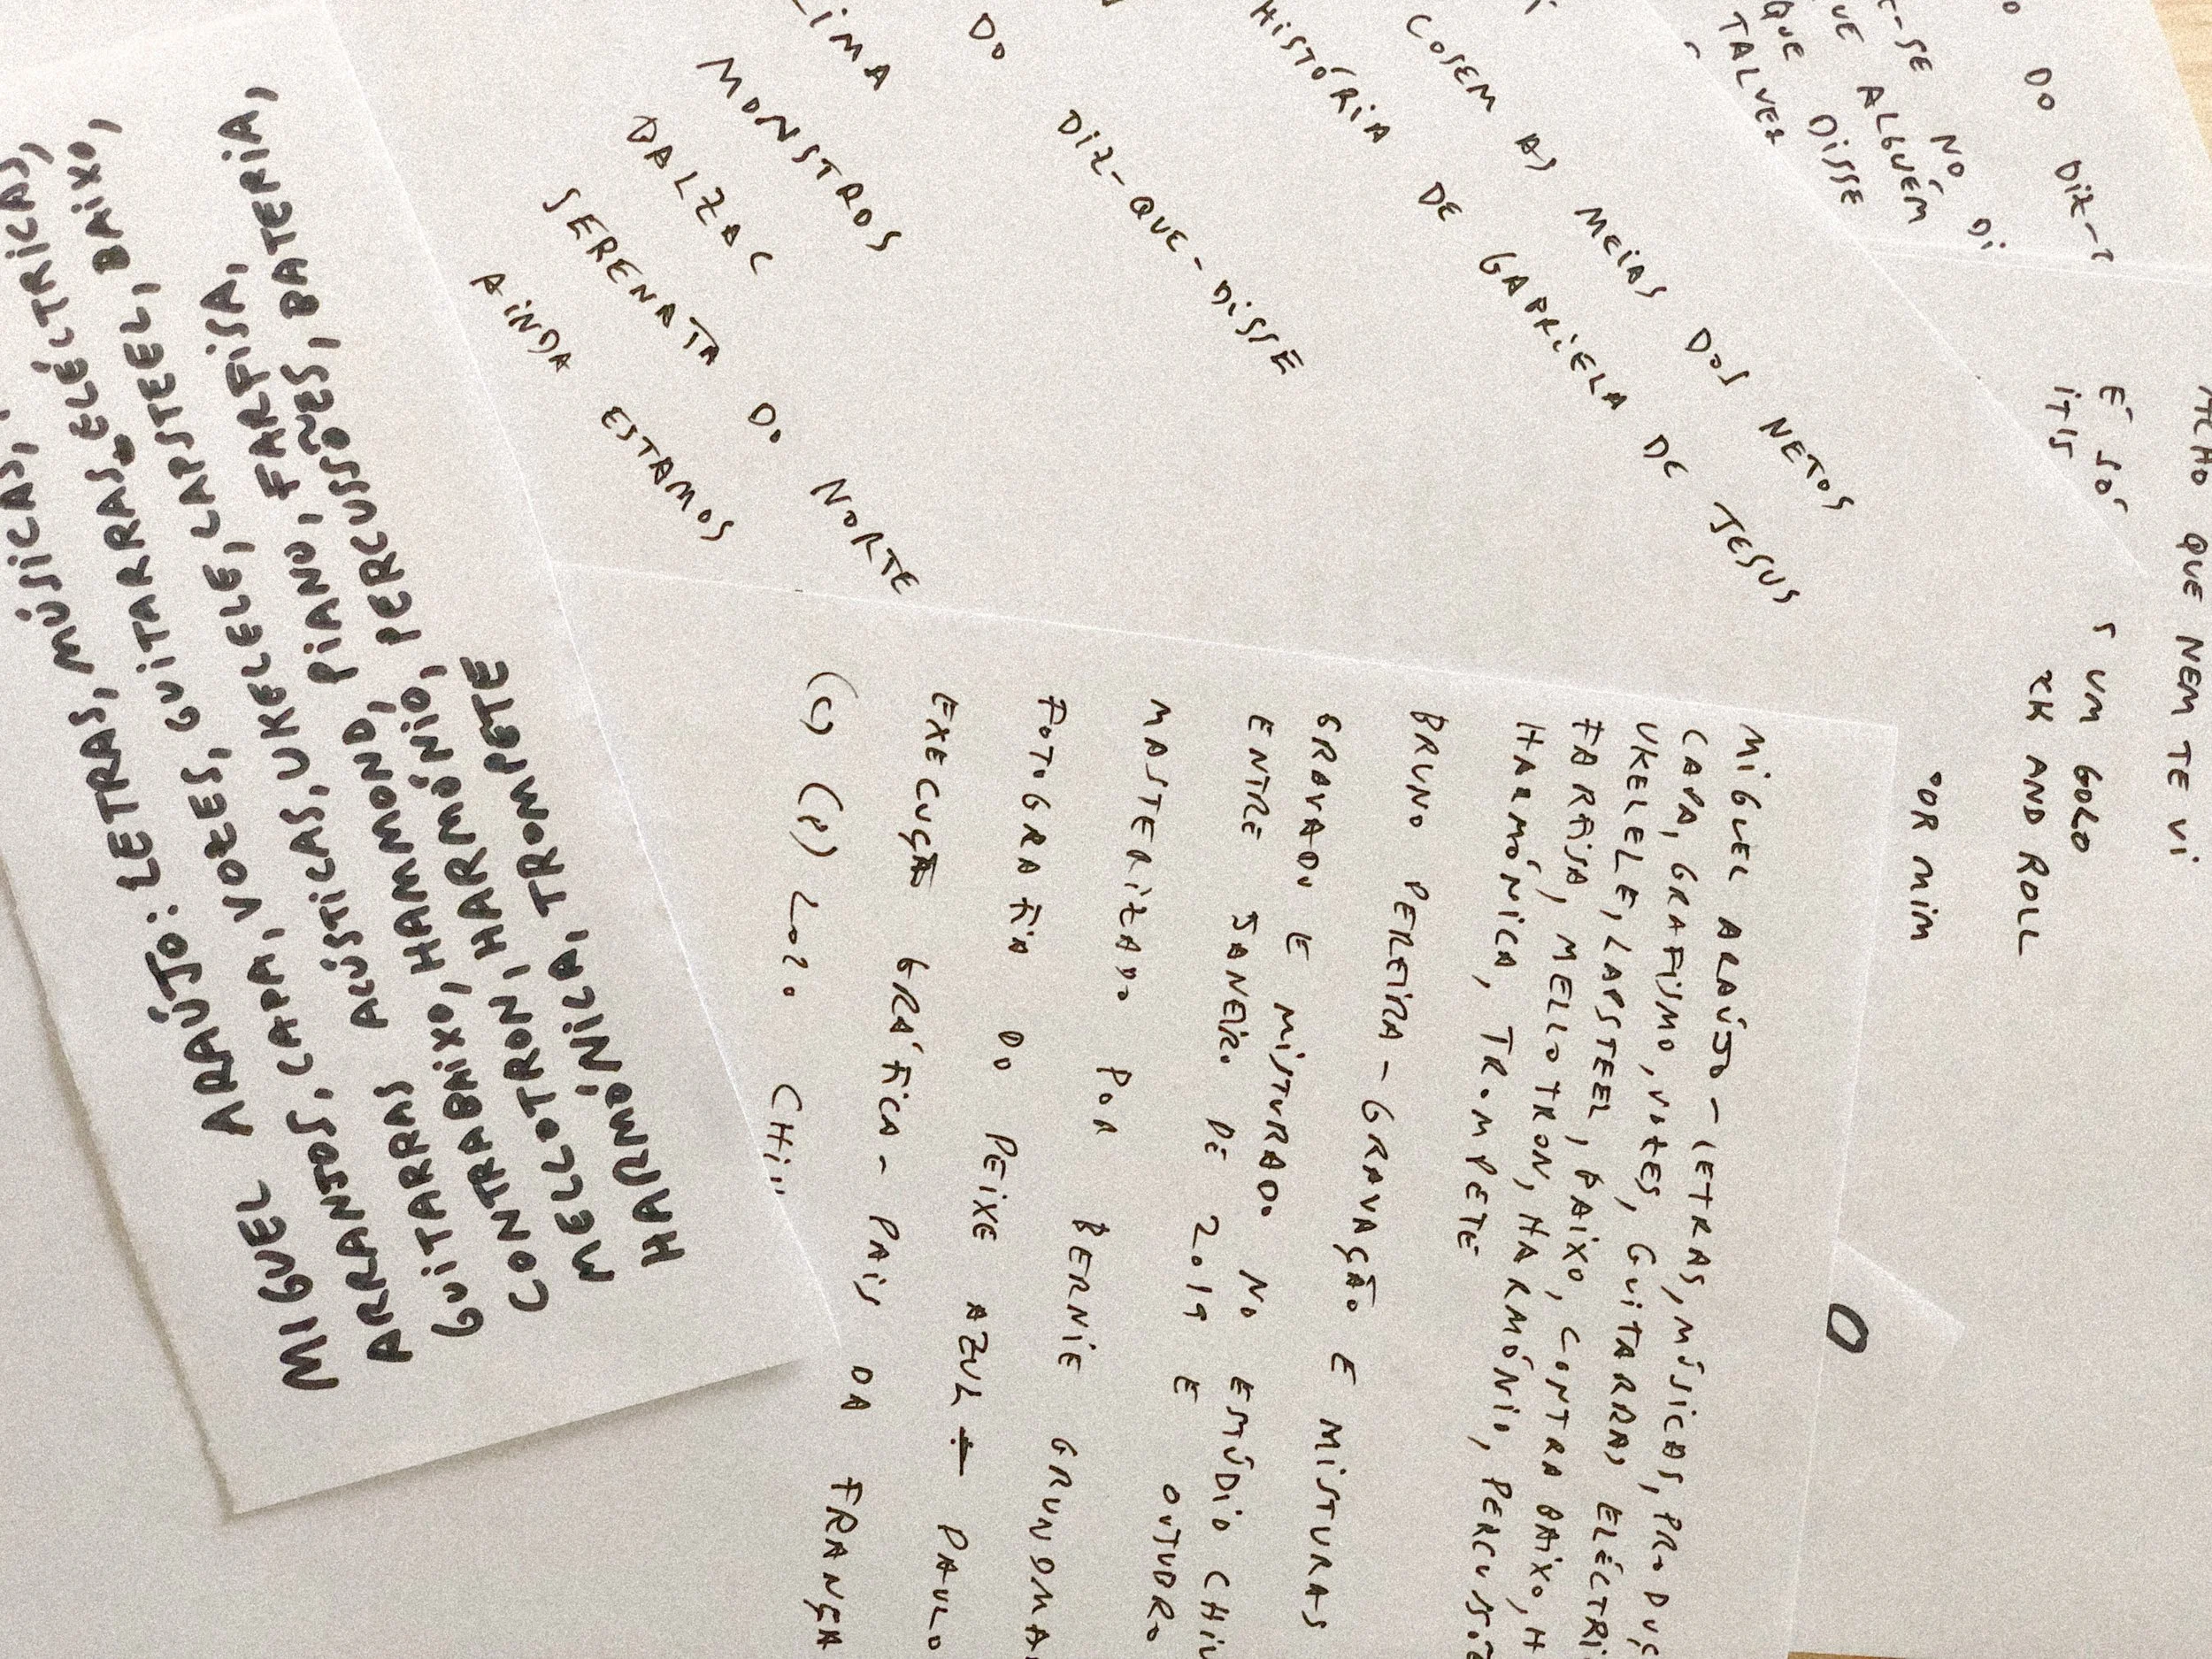 MIGUEL ARAÚJO: LETRAS, MÚSICAS,
ARRANJOS, CAPA, VOZES, GUITARRAS ELÉCTRICAS,
GUITARRAS ACÚSTICAS, UKELELE, LAPSTEEL, BAIXO,
CONTRABAIXO, HAMMOND, PIANO, FARFISA,
MELLOTRON, HARMÓNIO, PERCUSSÕES, BATERIA,
HARMÓNICA, TROMPETE
MONSTROS
BALZAC
SERENATA DO NORTE
AINDA ESTAMOS
DO DIZ-QUE-DISSE
HISTÓRIA DE GABRIELA DE JESUS
COSEM AS MEIAS DOS NETOS
TALVEZ
QUE DISSE
ALGUÉM
-SE NO DI
DO DIZ-
QUE NEM TE VI
É SÓ UM GOLO
AND ROLL
POR MIM
MIGUEL ARAÚJO - LETRAS, MÚSICAS, PRODUÇ
CAPA, GRAFISMO, VOZES, GUITARRAS ELÉCTRI
UKELELE, LAPSTEEL, BAIXO, CONTRABAIXO, H
FARFISA, MELLOTRON, HARMÓNIO, PERCUSSÕ
HARMÓNICA, TROMPETE
BRUNO PEREIRA - GRAVAÇÃO E MISTURAS
GRAVADO E MISTURADO NO ESTÚDIO CHIU
ENTRE JANEIRO DE 2019 E OUTUBRO
MASTERIZADO POR BERNIE GRUNDMA
FOTOGRAFIA DO PEIXE AZUL - PAULO
EXECUÇÃO GRÁFICA - PAIS DA FRANÇA
(C) (P) 2020 CHIU